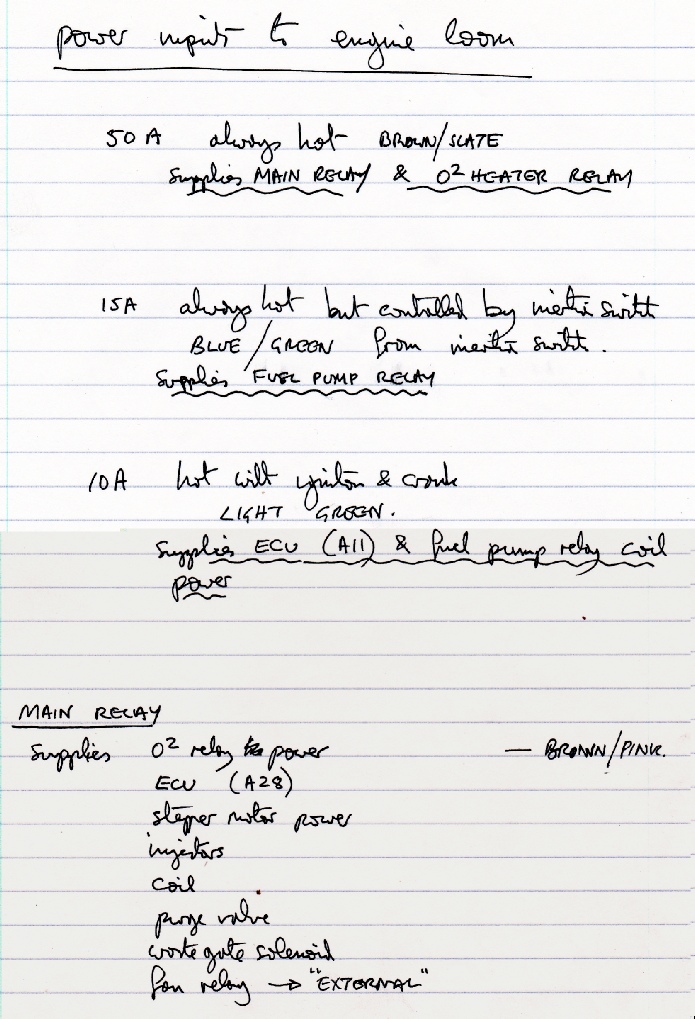 power inputs to engine loom
50A always hot BROWN/SLATE
Supplies MAIN RELAY & O2 HEATER RELAY
15A always hot but controlled by inertia switch
BLUE / GREEN from inertia switch.
Supplies FUEL PUMP RELAY
10A hot with ignition & crank
LIGHT GREEN.
Supplies ECU (A11) & fuel pump relay coil
power
MAIN RELAY
Supplies O2 relay power — BROWN/PINK.
ECU (A28)
stepper motor power
injectors
coil
purge valve
wastegate solenoid
fan relay → "EXTERNAL"